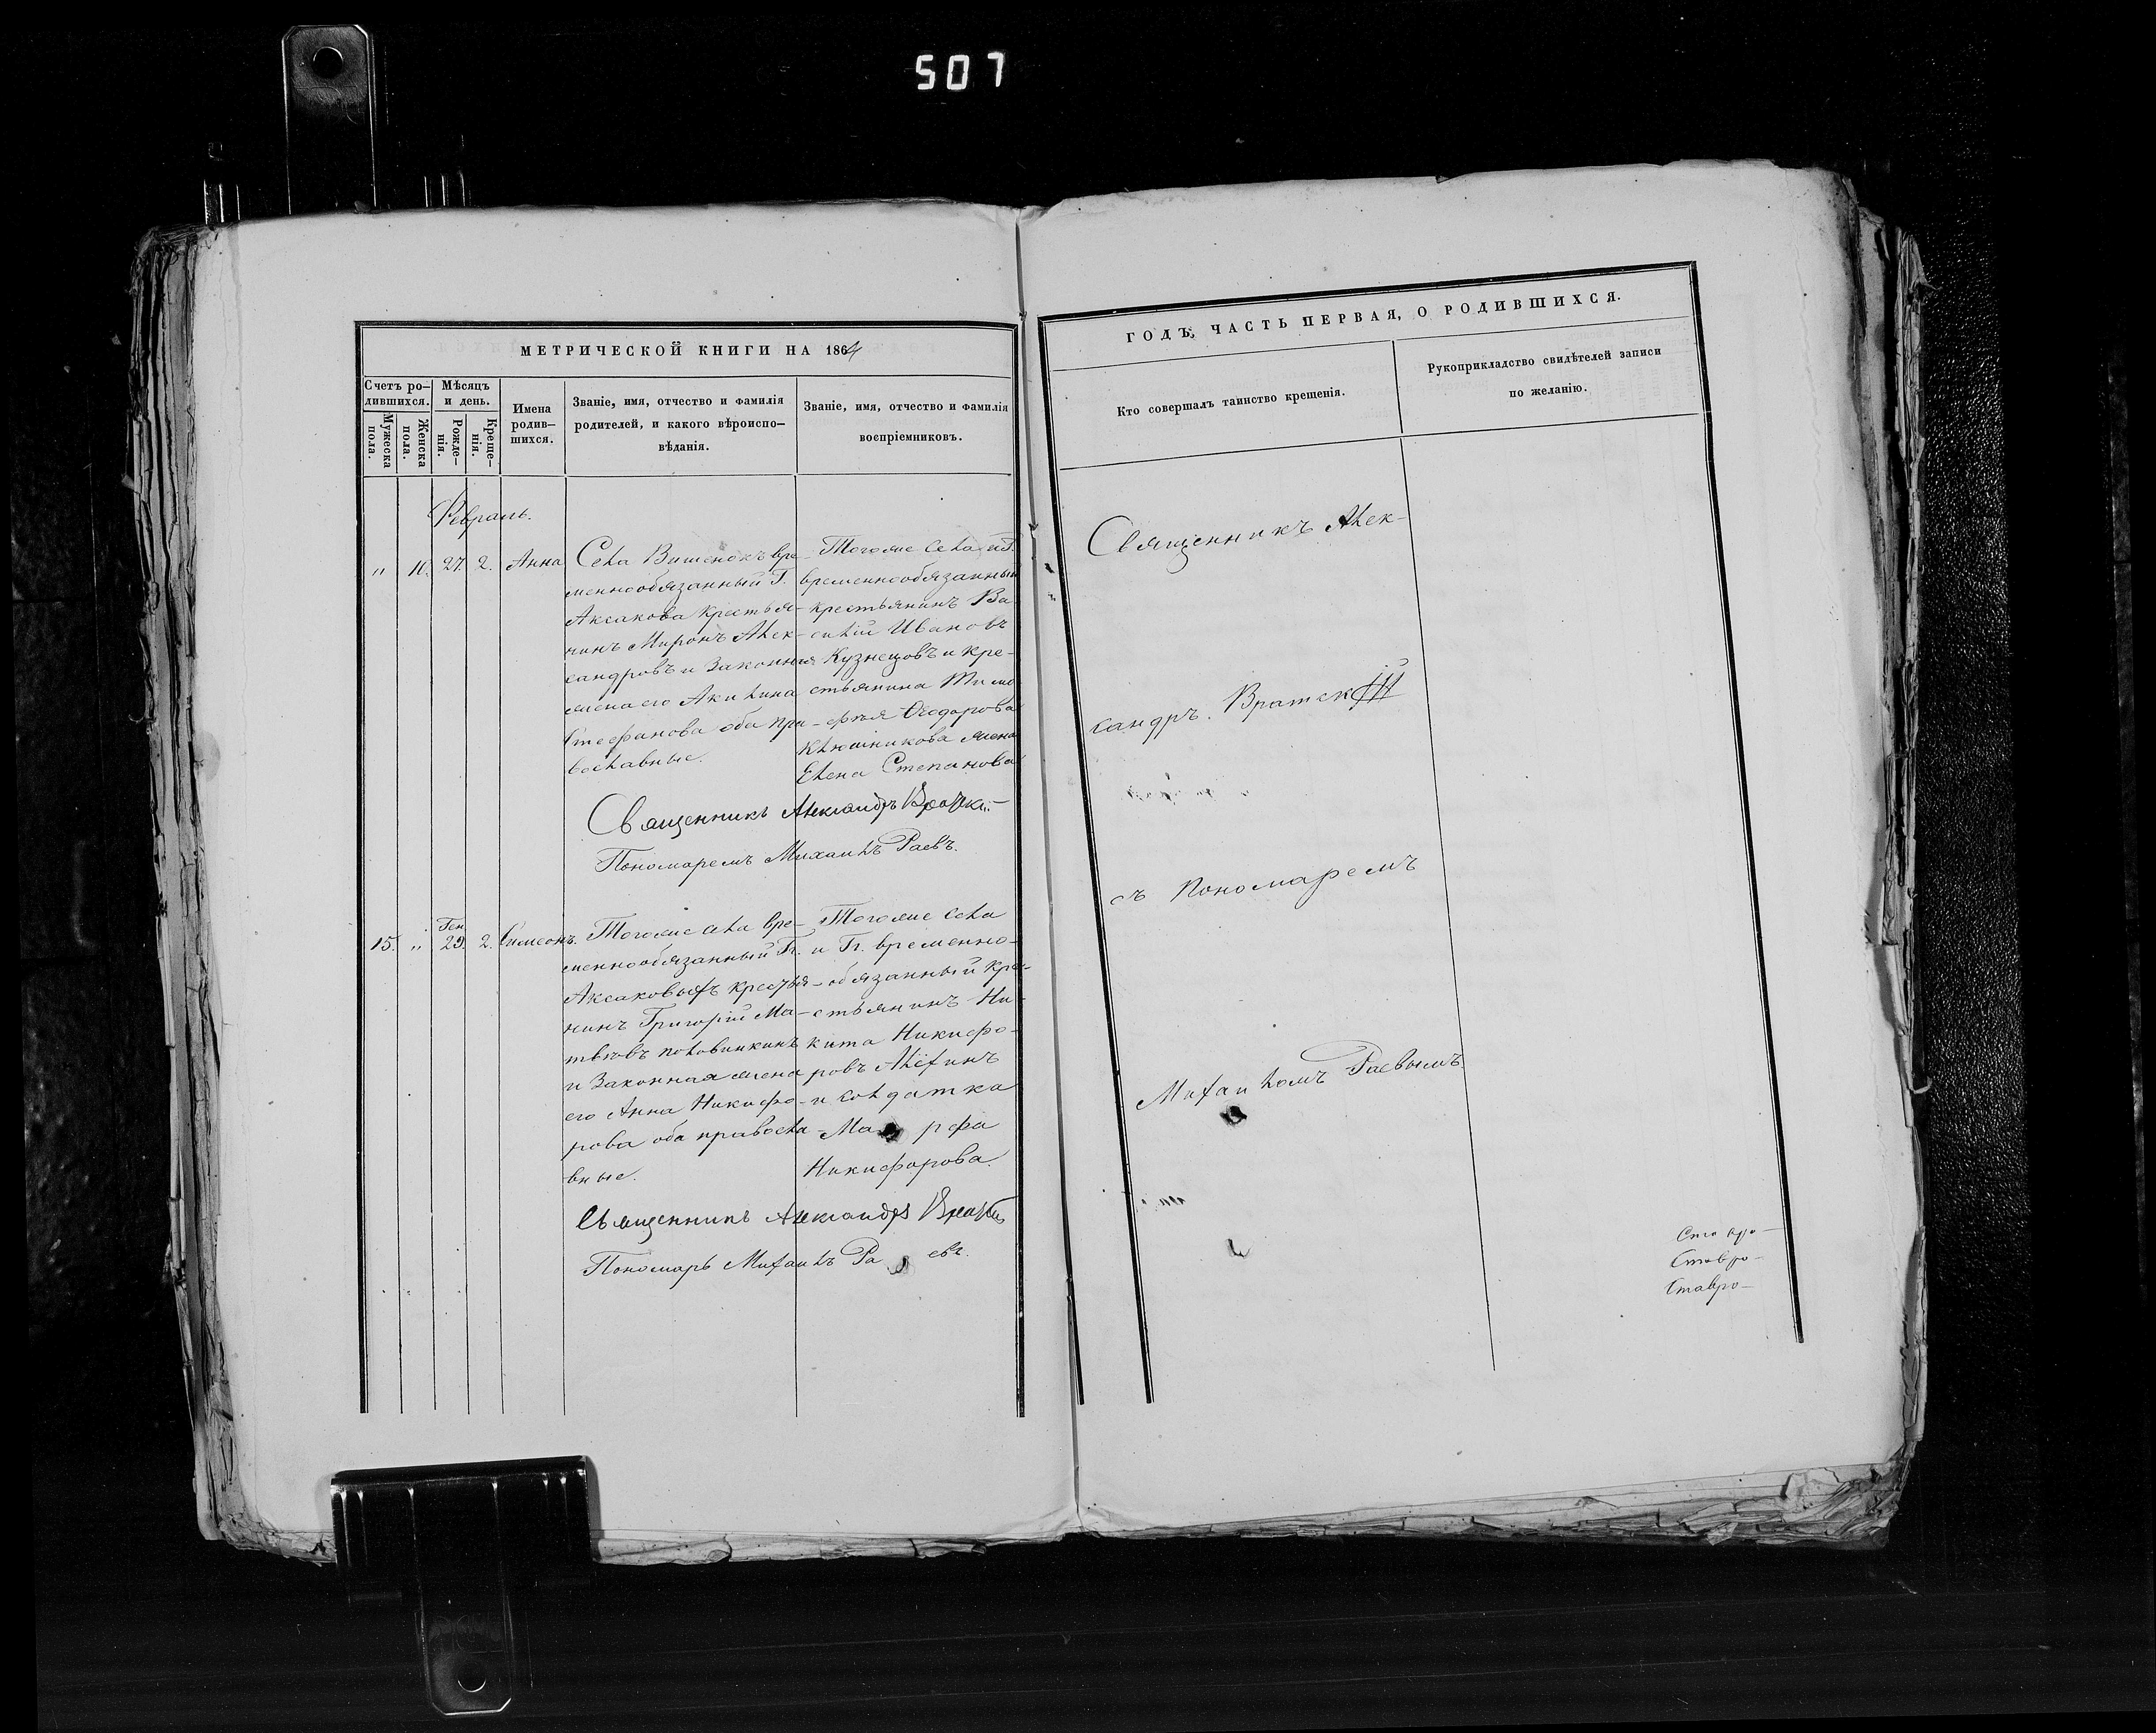 507
МЕТРИЧЕСКОЙ КНИГИ НА 1864
Счетъ ро-
дившихся.
Мужеска
пола.
Женска
пола.
Мѣсяцъ
и день.
Рожде-
нія.
Креще-
нія.
Имена
родив-
шихся.
Званіе, имя, отчество и фамилія
родителей, и какого вѣроиспо-
вѣданія.
Званіе, имя, отчество и фамилія
воспріемниковъ.
Февраль.
" 11. 27. 2. Анна
Села Вишенокъ вре-
меннообязанный Г.
Аксакова крестья-
нинъ Миронъ Алек-
сандровъ и законная
жена его Акилина
Стефанова оба пра-
вославные.
Тогоже села и Г.
временнообязанный
крестьянинъ Ва-
силій Ивановъ
Кузнецовъ и кре-
стьянина Тимо-
фея Ѳеодорова
Ключникова жена
Елена Степанова
Священникъ Александръ Братскій
Пономаремъ Михаилъ Раевъ.
15. " Ген. 29. 2. Симеонъ.
Тогоже села вре-
меннообязанный Гг.
Аксаковыхъ крестья-
нинъ Григорій Ма-
твѣевъ Половинкинъ
и законная жена
его Анна Никифо-
рова оба правосла-
вные.
Тогоже села
и Гг. временно-
обязанный кре-
стьянинъ Ни-
кита Никифо-
ровъ Алёхинъ
и солдатка
Марфа
Никифорова.
Священникъ Александръ Братскій
Пономарь Михаилъ Раевъ.
ГОДЪ, ЧАСТЬ ПЕРВАЯ, О РОДИВШИХСЯ.
Кто совершалъ таинство крещенія.
Рукоприкладство свидѣтелей записи
по желанію.
Священникъ Алек-
сандръ Братскій
съ Пономаремъ
Михаиломъ Раевымъ
Ставро-
Ставро-